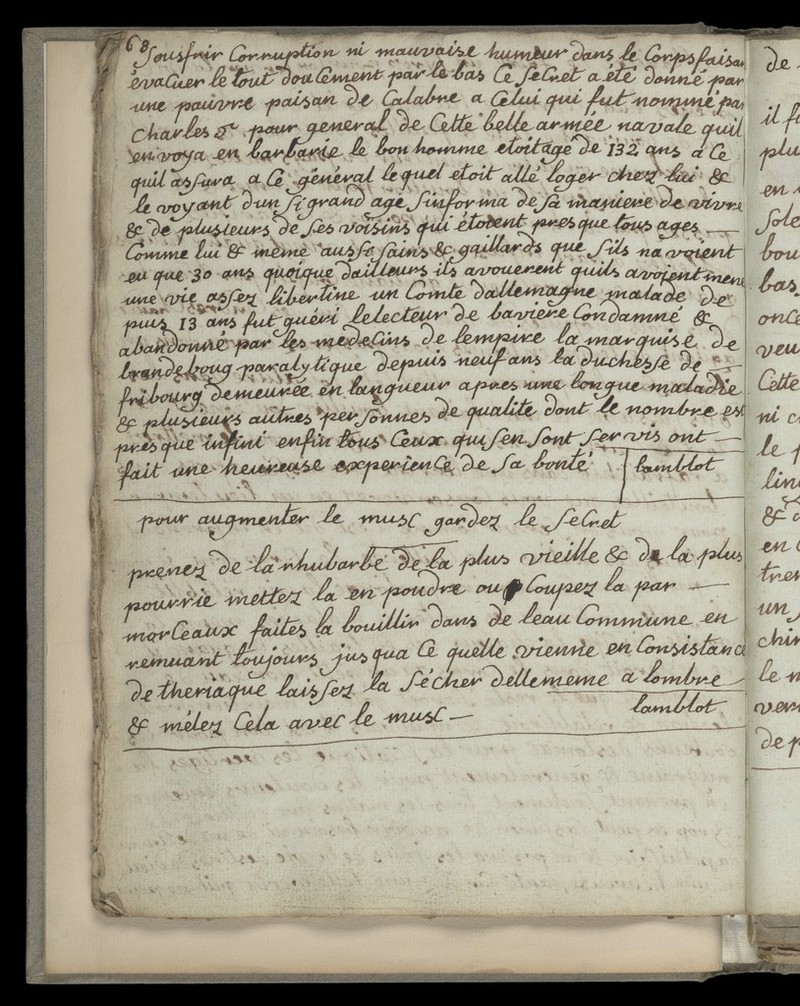 68
Sousfrir Corruption ni mauvaise humeur dans le Corps faisan
évacuer le tout doucement par le bas Ce seCret a été donné par
une pauvre paisan de Calabre a Celui qui fut nommé pa
Charles 2.e pour general de Cette belle armée navale quil
envoya en barbarie le bon homme etoit agé de 132 ans a Ce
quil assura a Cé général lequel etoit allé loger chez lui &
le voyant d'un si grand age s'informa de sa maniere de vivre
& de plusieurs de ses voisins qui étoient presque tous ages —
Comme lui & même aussi sains & gaillards que s'ils navoient
eu que 30 ans quoique dailleurs ils avouerent quils avoient mené
une vie assez libertine un Comte dallemagne malade de
puis 13 ans fut guéri lelecteur de baviere Condamné &
abandonné par les medeCins de lempire la marquise de
brandeboug paralytique depuis neuf ans la duchesse de —
fribourg demeurée en langueur apres une longue maladie
& plusieurs autres personnes de qualite dont le nombre est
presque infini enfin tous Ceux qui sen sont servis ont —
fait une heureuse experienCe de sa bonté lamblot
pour augmenter le musc gardez le seCret
prenez de la rhubarbe de la plus vieille & de la plus
pourrie mettez la en poudre ou Coupez la par —
morCeaux faites la bouillir dans de leau Commune en
remuant toujours jusqua Ce quelle vienne en Consistance
de theriaque laissez la sécher dellememe a lombre —
& mélez Cela avec le musC — lamblot
de
il f
plu
en
sole
bou
bas
onCe
veu
Cette
ni c
le
lin
&
en
tre
un
chi
le
ver
de p